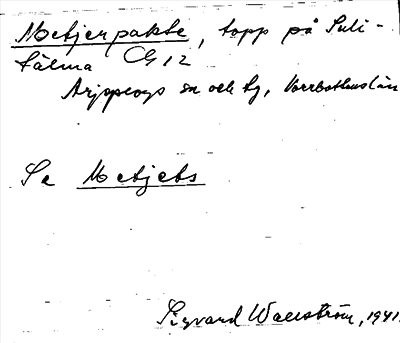 Metjerpakte, topp på Suli-
tälma CG 12
Arjeplogs sn och tg, Norrbottens län
Se Metjets
Sigvard Wallström, 1941.